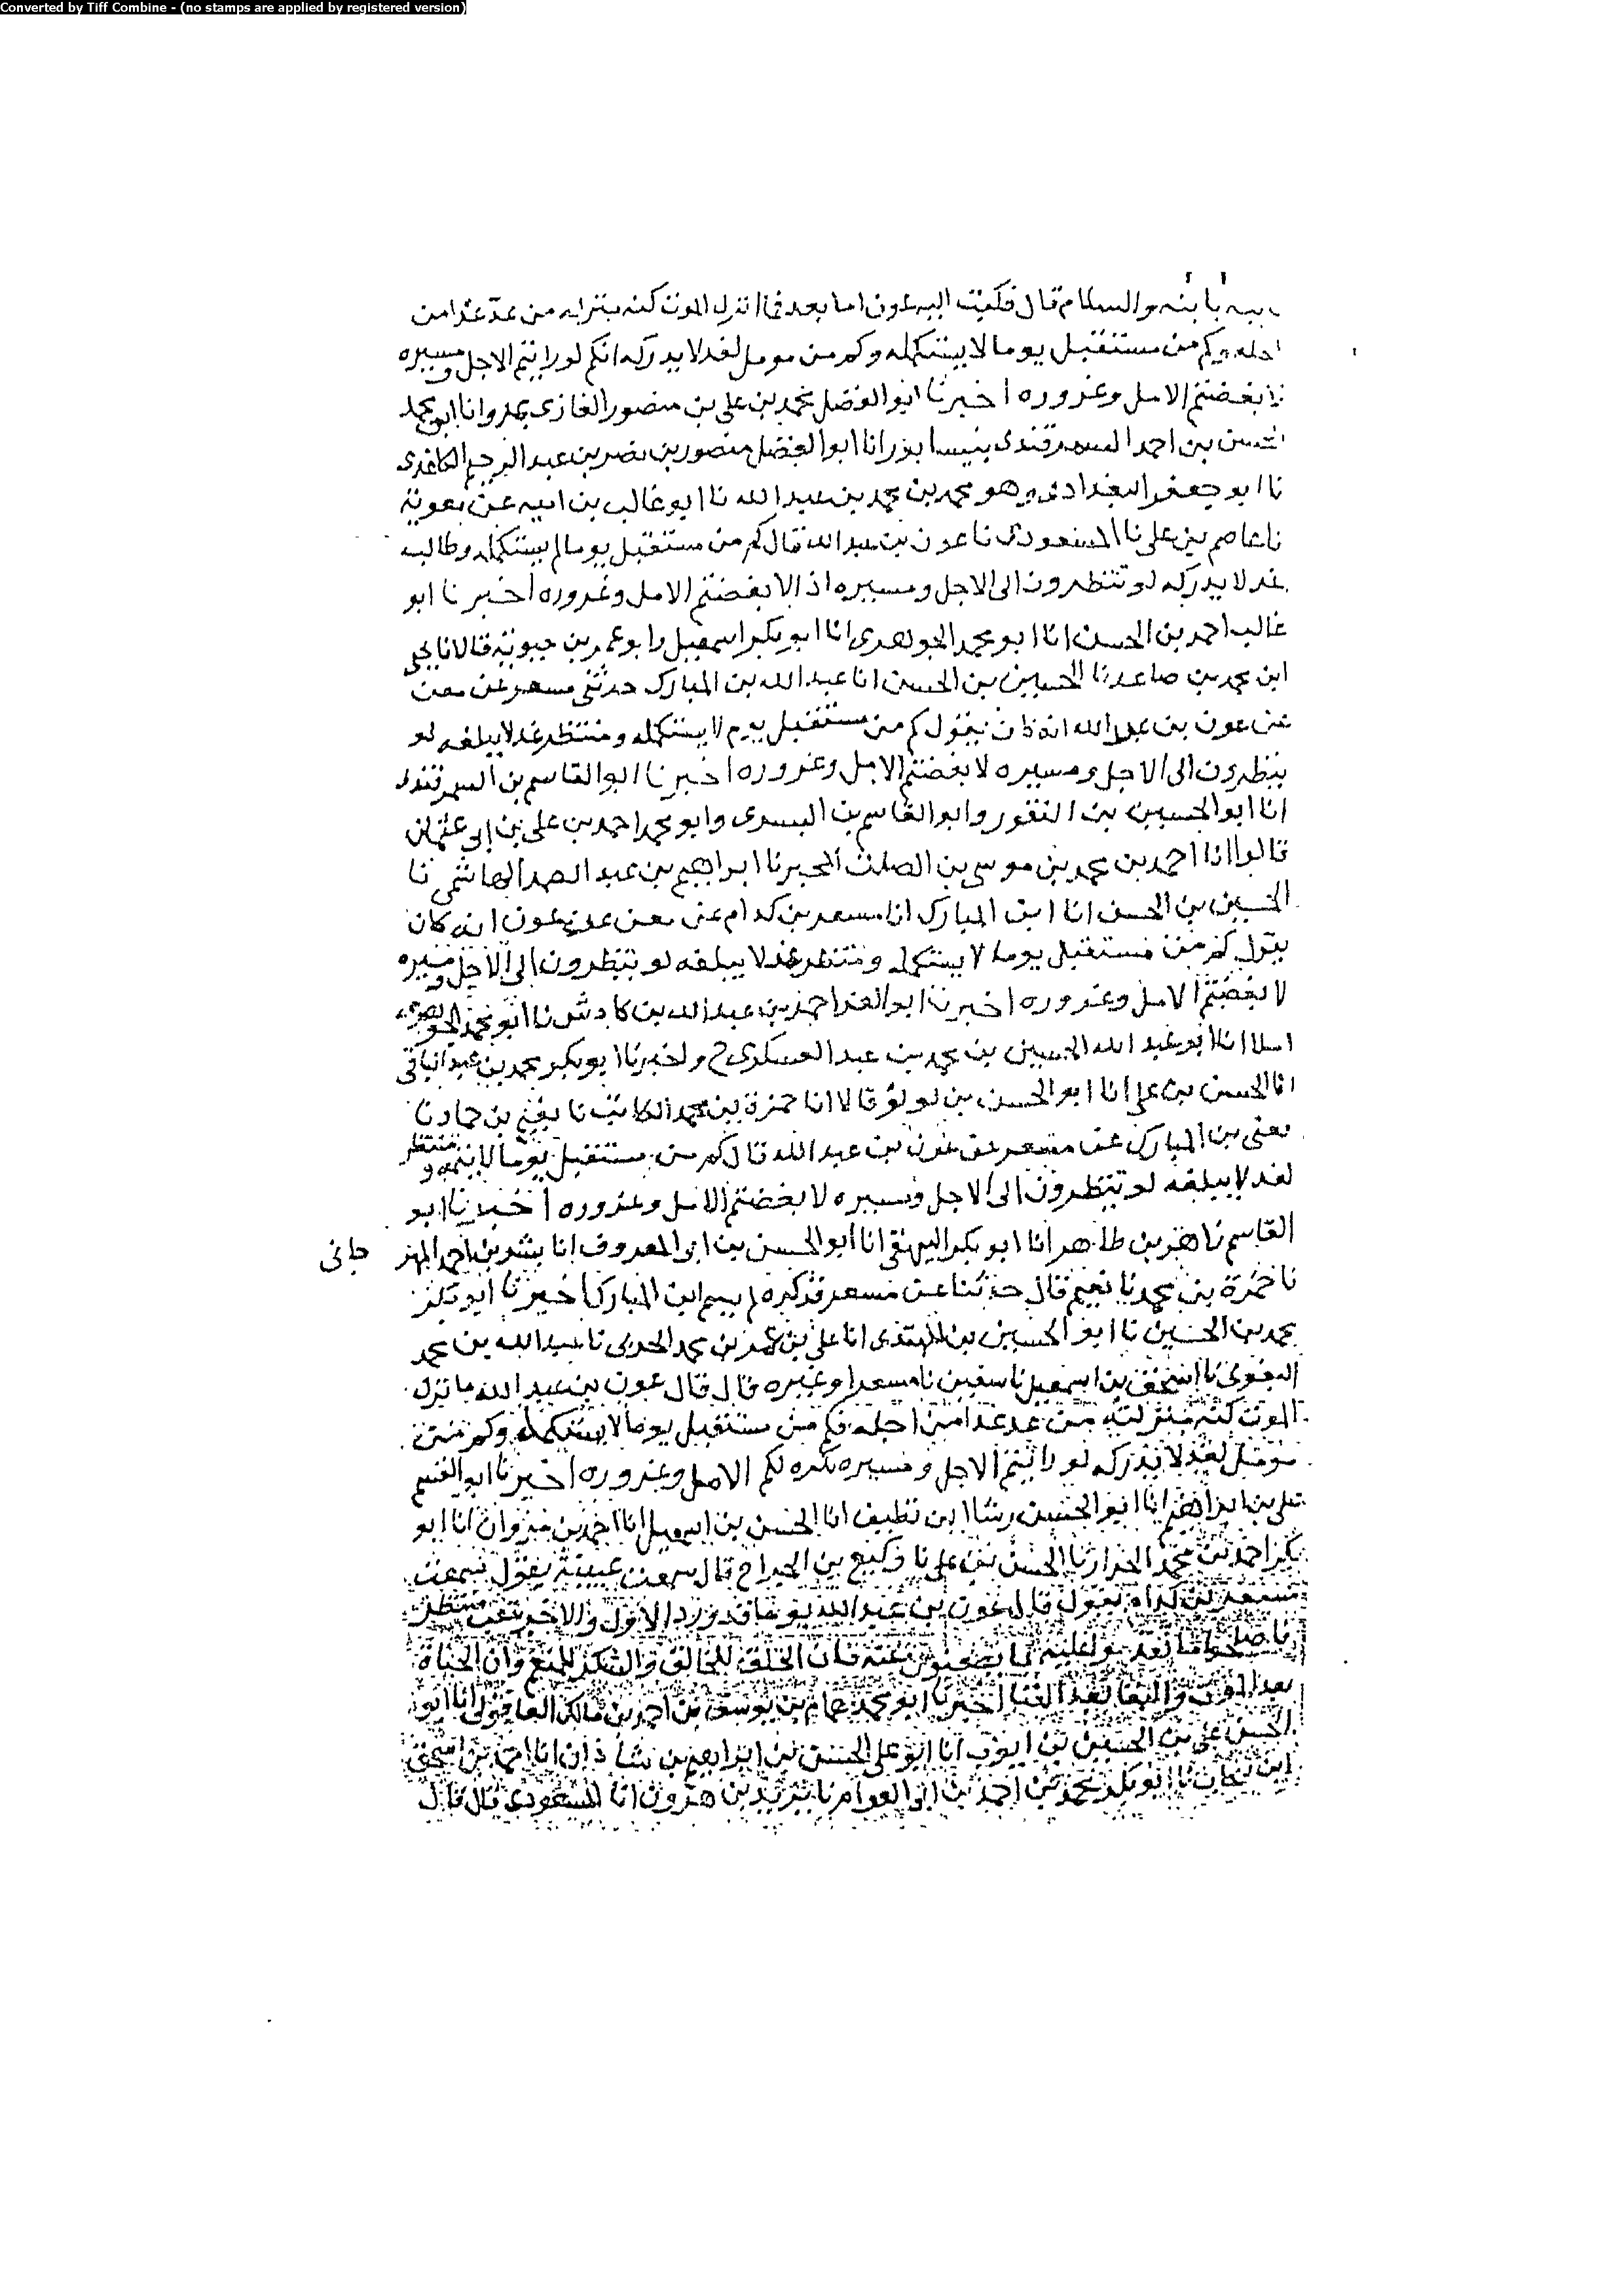 Converted by Tiff Combine - (no stamps are applied by registered version)
والسلام قال فكتب اليه عون اما بعد فما انزل الموت كنه من عد غدا من
اجله وكم من مستقبل يوما لا يستكمله وكم من مومل لغد لا يدركه انكم لو رايتم الاجل ومسيره
لابغضتم الامل وغروره اخبرنا ابو الفضل محمد بن على بن منصور الغازى بمرو انا ابو محمد
الحسن بن احمد السمرقندى بنيسابور انا ابو الفضل منصور بن نصر بن عبد الرحيم الكاغدى
نا ابو جعفر البغدادى وهو محمد بن محمد بن عبد الله نا ابو غالب بن ابنه عن معوية
نا عاصم بن على نا المسعودى نا عون بن عبد الله قال كم من مستقبل يوما لم يستكمله وطالب
غد لا يدركه لو تنظرون الى الاجل ومسيره اذ الا بغضتم الامل وغروره اخبرنا ابو
غالب احمد بن الحسن انا ابو محمد الجوهرى انا ابو بكر اسمعيل وابو عمر بن حيوية قالا نا يحيى
ابن محمد بن صاعد نا الحسين بن الحسن انا عبد الله بن المبارك حدثنى مسعر عن معن
عن عون بن عبد الله انه كان يقول كم من مستقبل يوم لا يستكمله ومنتظر غد لا يبلغه لو
ينظرون الى الاجل ومسيره لابغضتم الامل وغروره اخبرنا ابو القاسم بن السمرقندى
انا ابو الحسين بن النقور وابو القاسم بن البسرى وابو محمد احمد بن على بن ابى عثمان
قالوا انا احمد بن محمد بن موسى بن الصلت المجبر نا ابراهيم بن عبد الصمد الهاشمى نا
الحسين بن الحسن انا ابن المبارك انا مسعر بن كدام عن معن عن عون انه كان
يقول كم من مستقبل يوما لا يستكمله ومنتظر غد لا يبلغه لو تنظرون الى الاجل ومسيره
لابغضتم الامل وغروره اخبرنا ابو العز احمد بن عبد الله بن كادش نا ابو محمد الجوهرى
املا انا ابو عبد الله الحسين بن محمد بن عبد العسكرى ح واخبرنا ابو بكر محمد بن عبد الباقى
انا الحسن بن على انا ابو الحسن بن لولؤ قالا انا حمزة بن محمد الكاتب نا نعيم بن حماد نا
يعنى بن المبارك عن مسعر عن عون بن عبد الله قال كم من مستقبل يوما لا يتمه ومنتظر
لغد لا يبلغه لو تنظرون الى الاجل ومسيره لابغضتم الامل وغروره اخبرنا ابو
القاسم زاهر بن طاهر انا ابو بكر البيهقى انا ابو الحسن بن ابى المعروف انا بشر بن احمد المهر جانى
نا حمزة بن محمد نا نعيم قال حدثنا عن مسعر فذكره لم يسم ابن المبارك اخبرنا ابو بكر
محمد بن الحسين نا ابو الحسين بن المهتدى انا على بن عمر بن محمد الحربى نا عبد الله بن محمد
البغوى نا اسحق بن اسمعيل نا سفين نا مسعر او غيره قال قال عون بن عبد الله ما نزل
الموت كنه منزلته من عد غدا من اجله فكم من مستقبل يوما لا يستكمله وكم من
مومل لغد لا يدركه لو رايتم الاجل ومسيره نكره لكم الامل وغروره اخبرنا ابو القسم
على بن ابراهيم انا ابو الحسن رشا ابن نظيف انا الحسن بن اسمعيل انا احمد بن مروان انا ابو
بكر احمد بن محمد نا الحسن بن على نا وكيع بن الجراح قال سمعت عيينة يقول سمعت
مسعر بن كدام يقول قال عون بن عبد الله يوما قد ورد الاول والاخر متعب منتظر
فاصلحوا ما تقدمو عليه بما تظعنون عنه فان الخلق للخالق والشكر للمنعم وان الحياة
بعد الموت والبقا بعد الفنا اخبرنا ابو محمد بن يوسف بن احمد بن مالك العاقولى انا ابو
الحسن على بن الحسين بن ايوب انا ابو على الحسن بن ابراهيم بن شاذان انا احمد بن اسحق
ابن نا ابو بكر محمد بن احمد بن ابى العوام نا يزيد بن هرون انا المسعودى قال قال